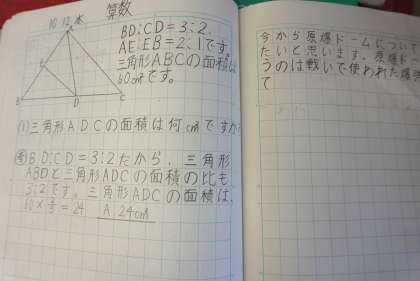 10.12.水
算数
A
E
B
D
C
BD:CD=3:2、
AE:EB=2:1です。
三角形ABCの面積は
60cm²です。
(1)三角形ADCの面積は何cm²ですか
BD:CD=3:2だから、三角形
ABDと三角形ADCの面積の比も
3:2です。三角形ADCの面積は、
60×2/5=24 A.24cm²
今から原爆ドームについ
たいと思います。原爆ドー
うのは戦いで使われた爆
て